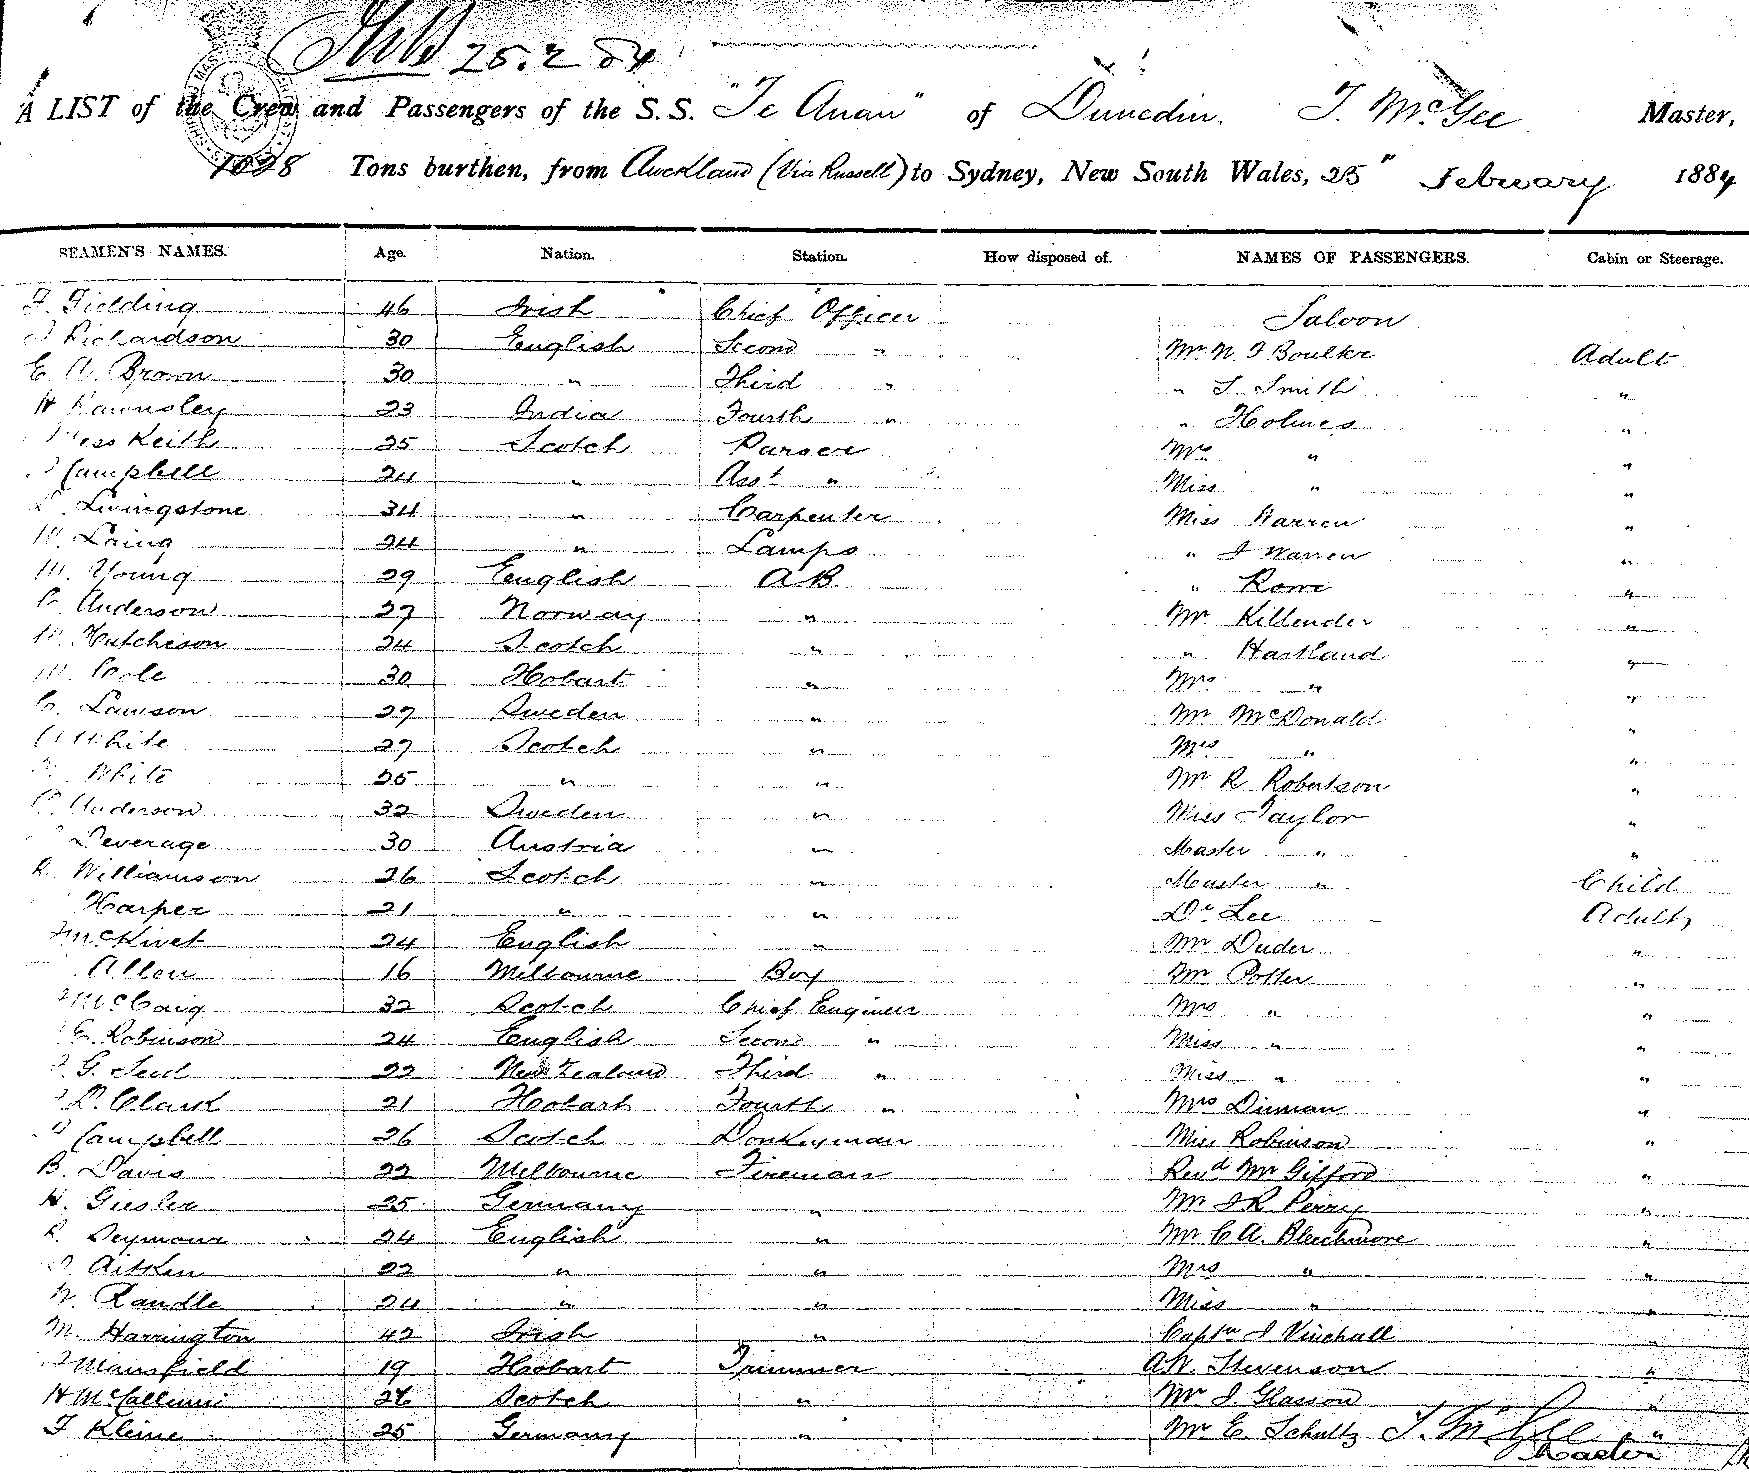 25.2.84
A LIST of the Crew and Passengers of the S.S. "Te Anau" of Dunedin. T. McGee Master,
1028 Tons burthen, from Auckland (Via Russell) to Sydney, New South Wales, 25" February 1884
SEAMEN'S NAMES. Age. Nation. Station. How disposed of. NAMES OF PASSENGERS. Cabin or Steerage.
Fielding 46 Irish Chief Officer Saloon
Richardson 30 English Second " Mr Boulkr Adult
E. A. Brown 30 " Third " " Smith "
H Rawnsley 23 India Fourth " " Holmes "
Keith 25 Scotch Purser Mrs " "
Campbell 24 " Asst " Miss " "
Livingstone 34 " Carpenter Miss Warren "
Laing 24 " Lamps " Warren "
Young 29 English AB " Rowe "
Anderson 27 Norway " Mr Killender "
Hutchison 24 Scotch " " Hartland "
Cole 30 Hobart " Mrs " "
C. Lawson 27 Sweden " Mr McDonald "
White 27 Scotch " Mrs " "
White 25 " " Mr R Robertson "
Anderson 32 Sweden " Miss Taylor "
Beverage 30 Austria " Master " "
R Williamson 26 Scotch " Master " Child
Harper 21 " " Dr Lee Adult
McKivet 24 English " Mr Duder "
Allen 16 Melbourne Boy Mr Potter "
McCaig 32 Scotch Chief Engineer Mrs " "
E. Robinson 24 English Second " Miss " "
G. 22 New Zealand Third " Miss " "
D. Clark 21 Hobart Fourth " Mrs Dinman "
Campbell 26 Scotch Donkeyman Miss Robinson "
B. Davis 22 Melbourne Fireman Revd Mr Gifford "
H. Giesler 25 Germany " Mr J R Perry "
R. Seymour 24 English " Mr C A. Bleechmore "
Aitken 22 " " Mrs " "
W. Randle 24 " " Miss " "
M. Harrington 42 Irish " Captn J Vinehall "
Mansfield 19 Hobart Trimmer A W. Stevenson "
H McCallum 26 Scotch " Mr J Glasson "
F Kleine 25 Germany " Mr E. Schultz T. McGee "
Master